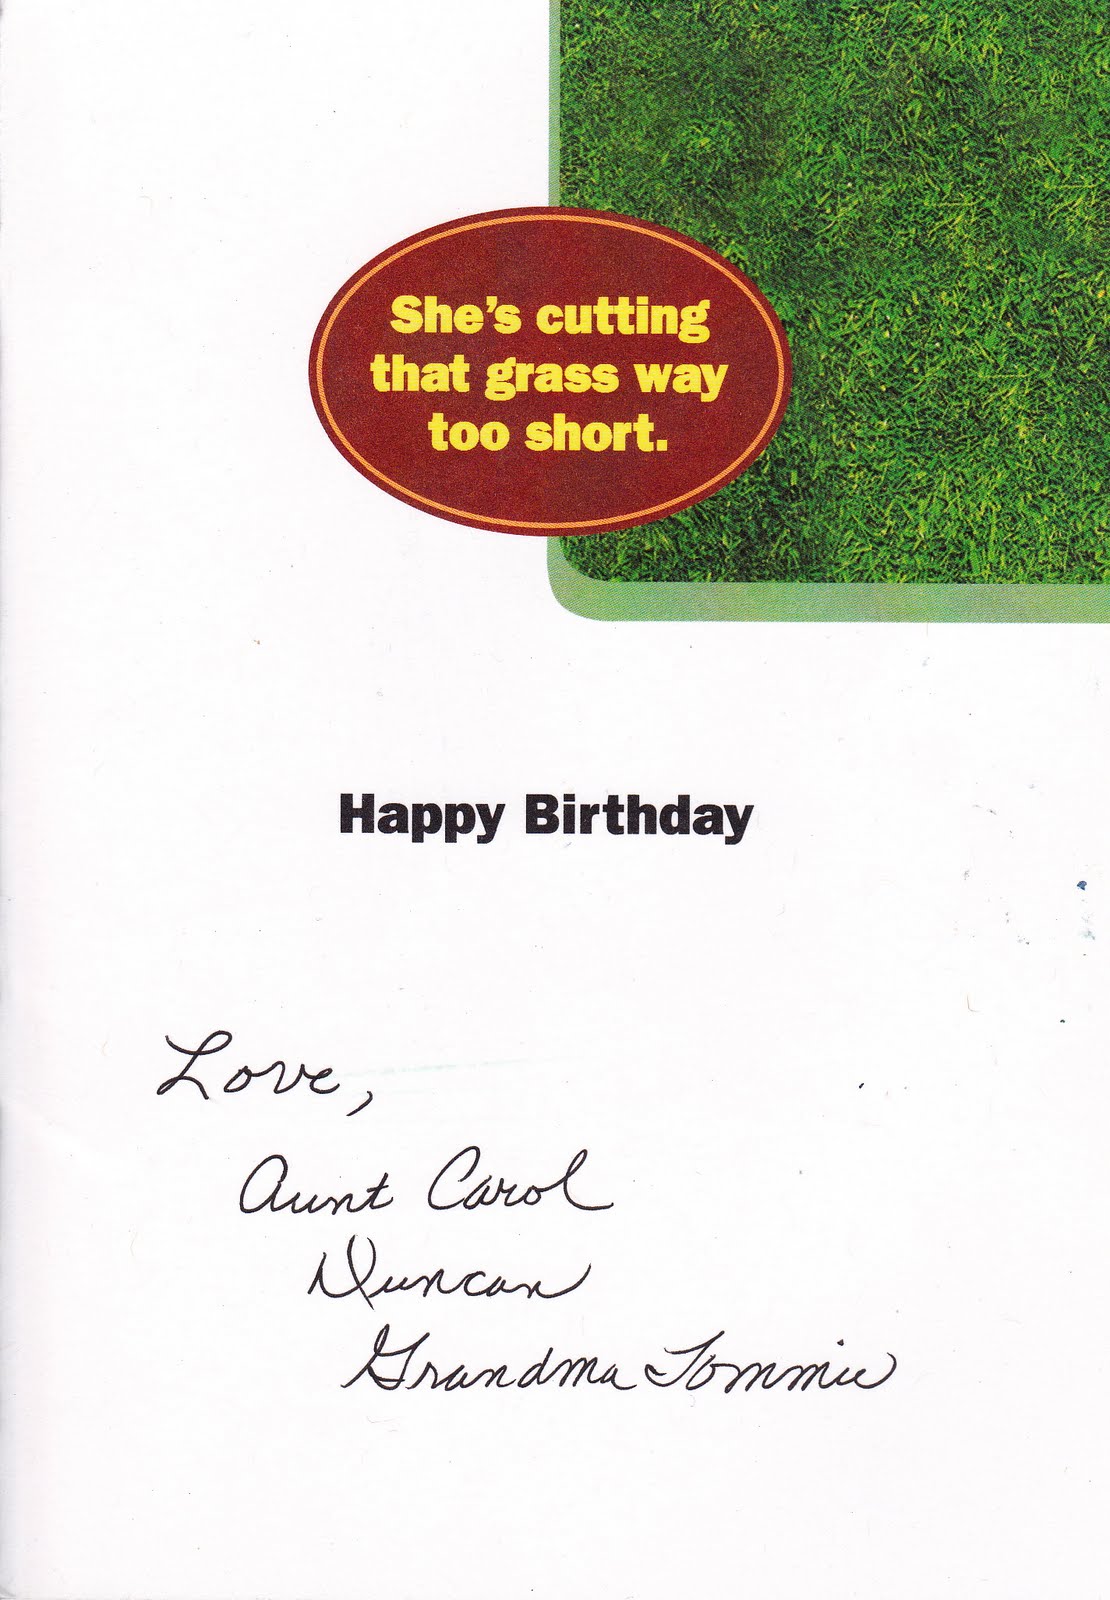 She's cutting
that grass way
too short.
Happy Birthday
Love,
Aunt Carol
Duncan
Grandma Tommie